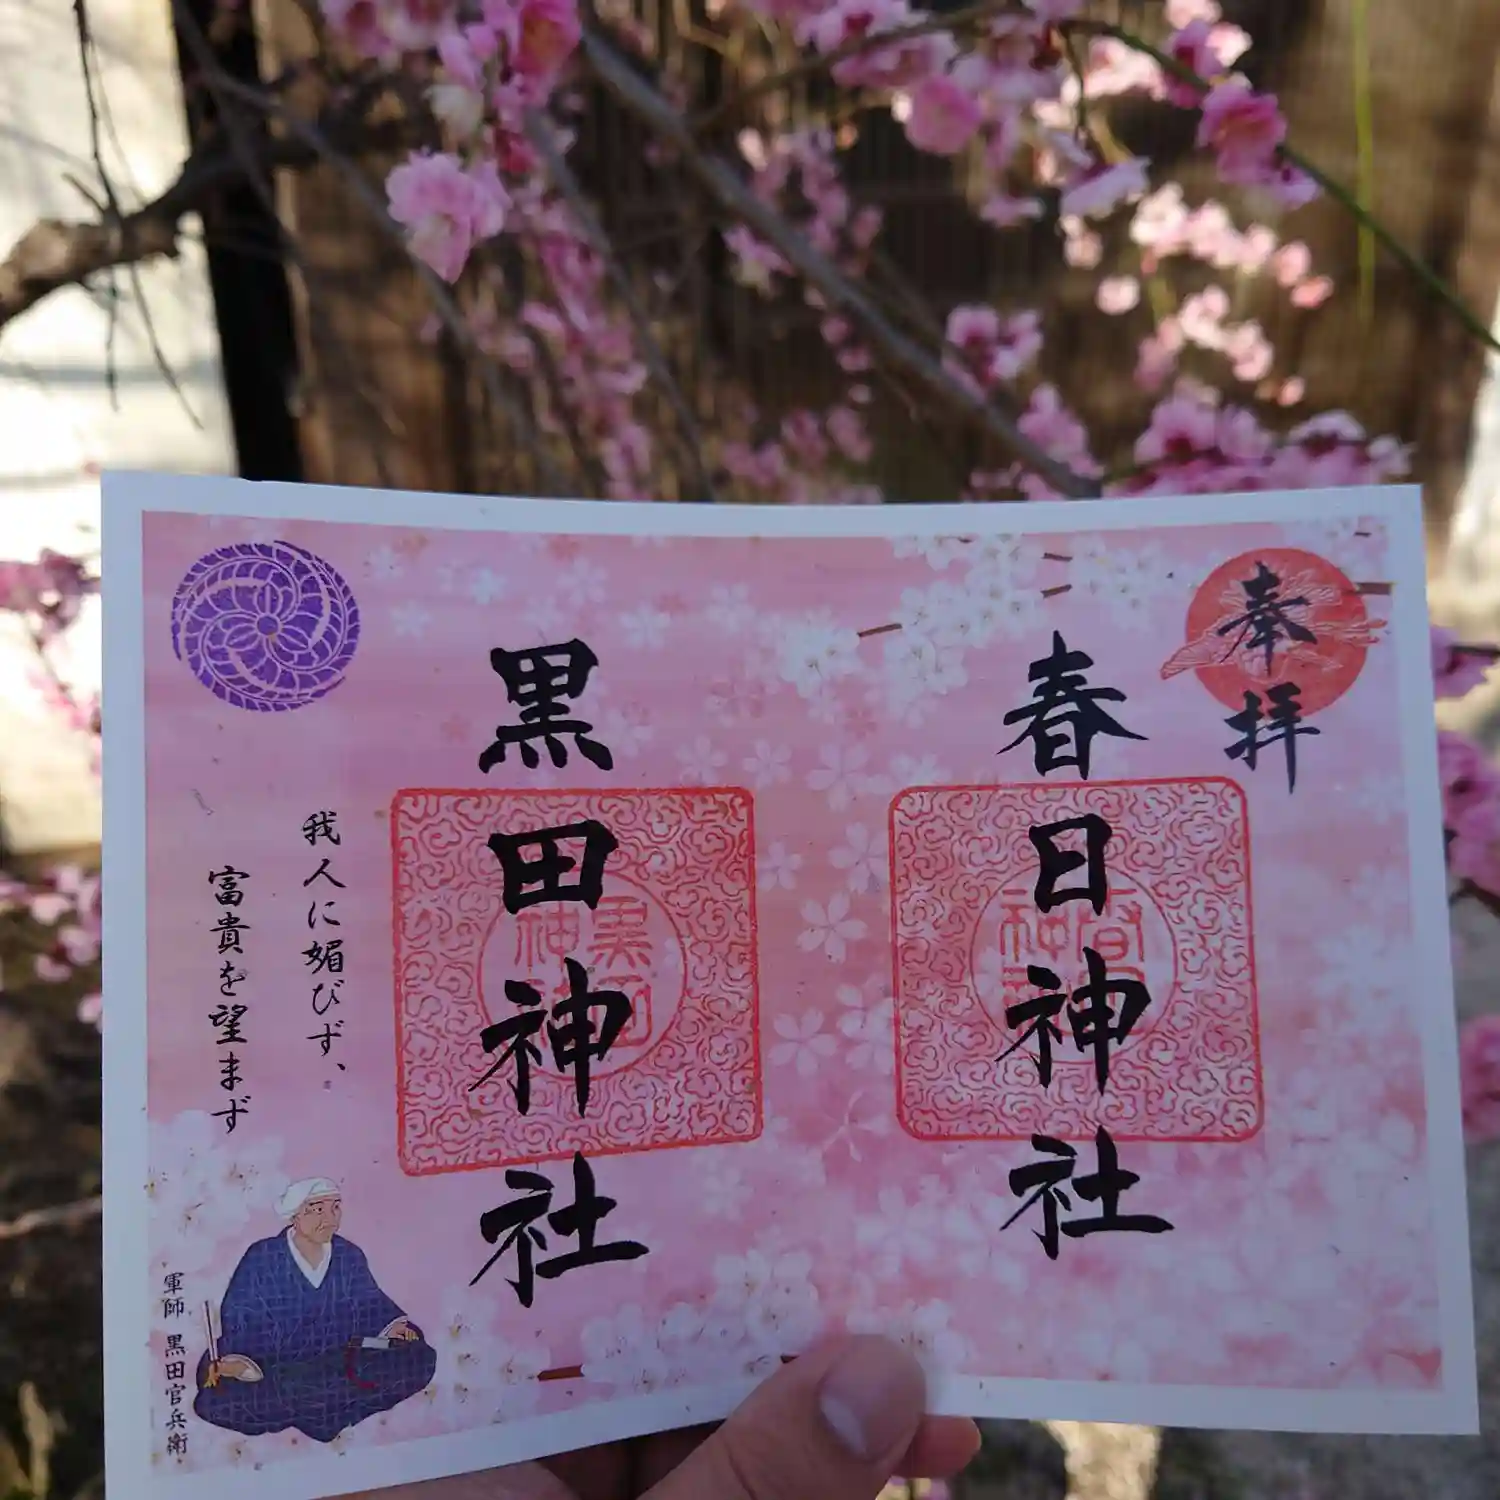 奉拝
春日神社
黒田神社
我人に媚びず、
富貴を望まず
軍師 黒田官兵衛